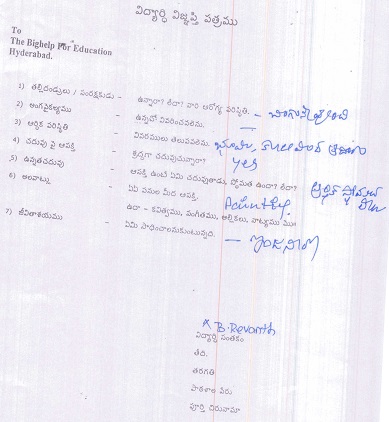 విద్యార్థి విజ్ఞప్తి పత్రము
To
The Bighelp For Education
Hyderabad.
1) తల్లిదండ్రులు / సంరక్షకుడు - ఉన్నారా? లేదా? వారి ఆరోగ్య పరిస్థితి.
2) అంగవైకల్యము - ఉన్నచో వివరించవలెను.
3) ఆర్థిక పరిస్థితి - వివరములు తెలుపవలెను.
4) చదువు పై ఆసక్తి - శ్రద్ధగా చదువుచున్నారా? yes
5) ఉన్నతచదువు - ఆసక్తి ఉంటే ఏమి చదువుతాడు, స్తోమత ఉందా? లేదా?
6) అలవాట్లు - ఏఏ పనుల మీద ఆసక్తి.
ఉదా - కవిత్వము, సంగీతము, అల్లికలు, నాట్యము
7) జీవితాశయము - ఏమి సాధించాలనుకుంటున్నది.
B. Revanth
విద్యార్థి సంతకం
తేది.
తరగతి
పాఠశాల పేరు
పూర్తి చిరునామా